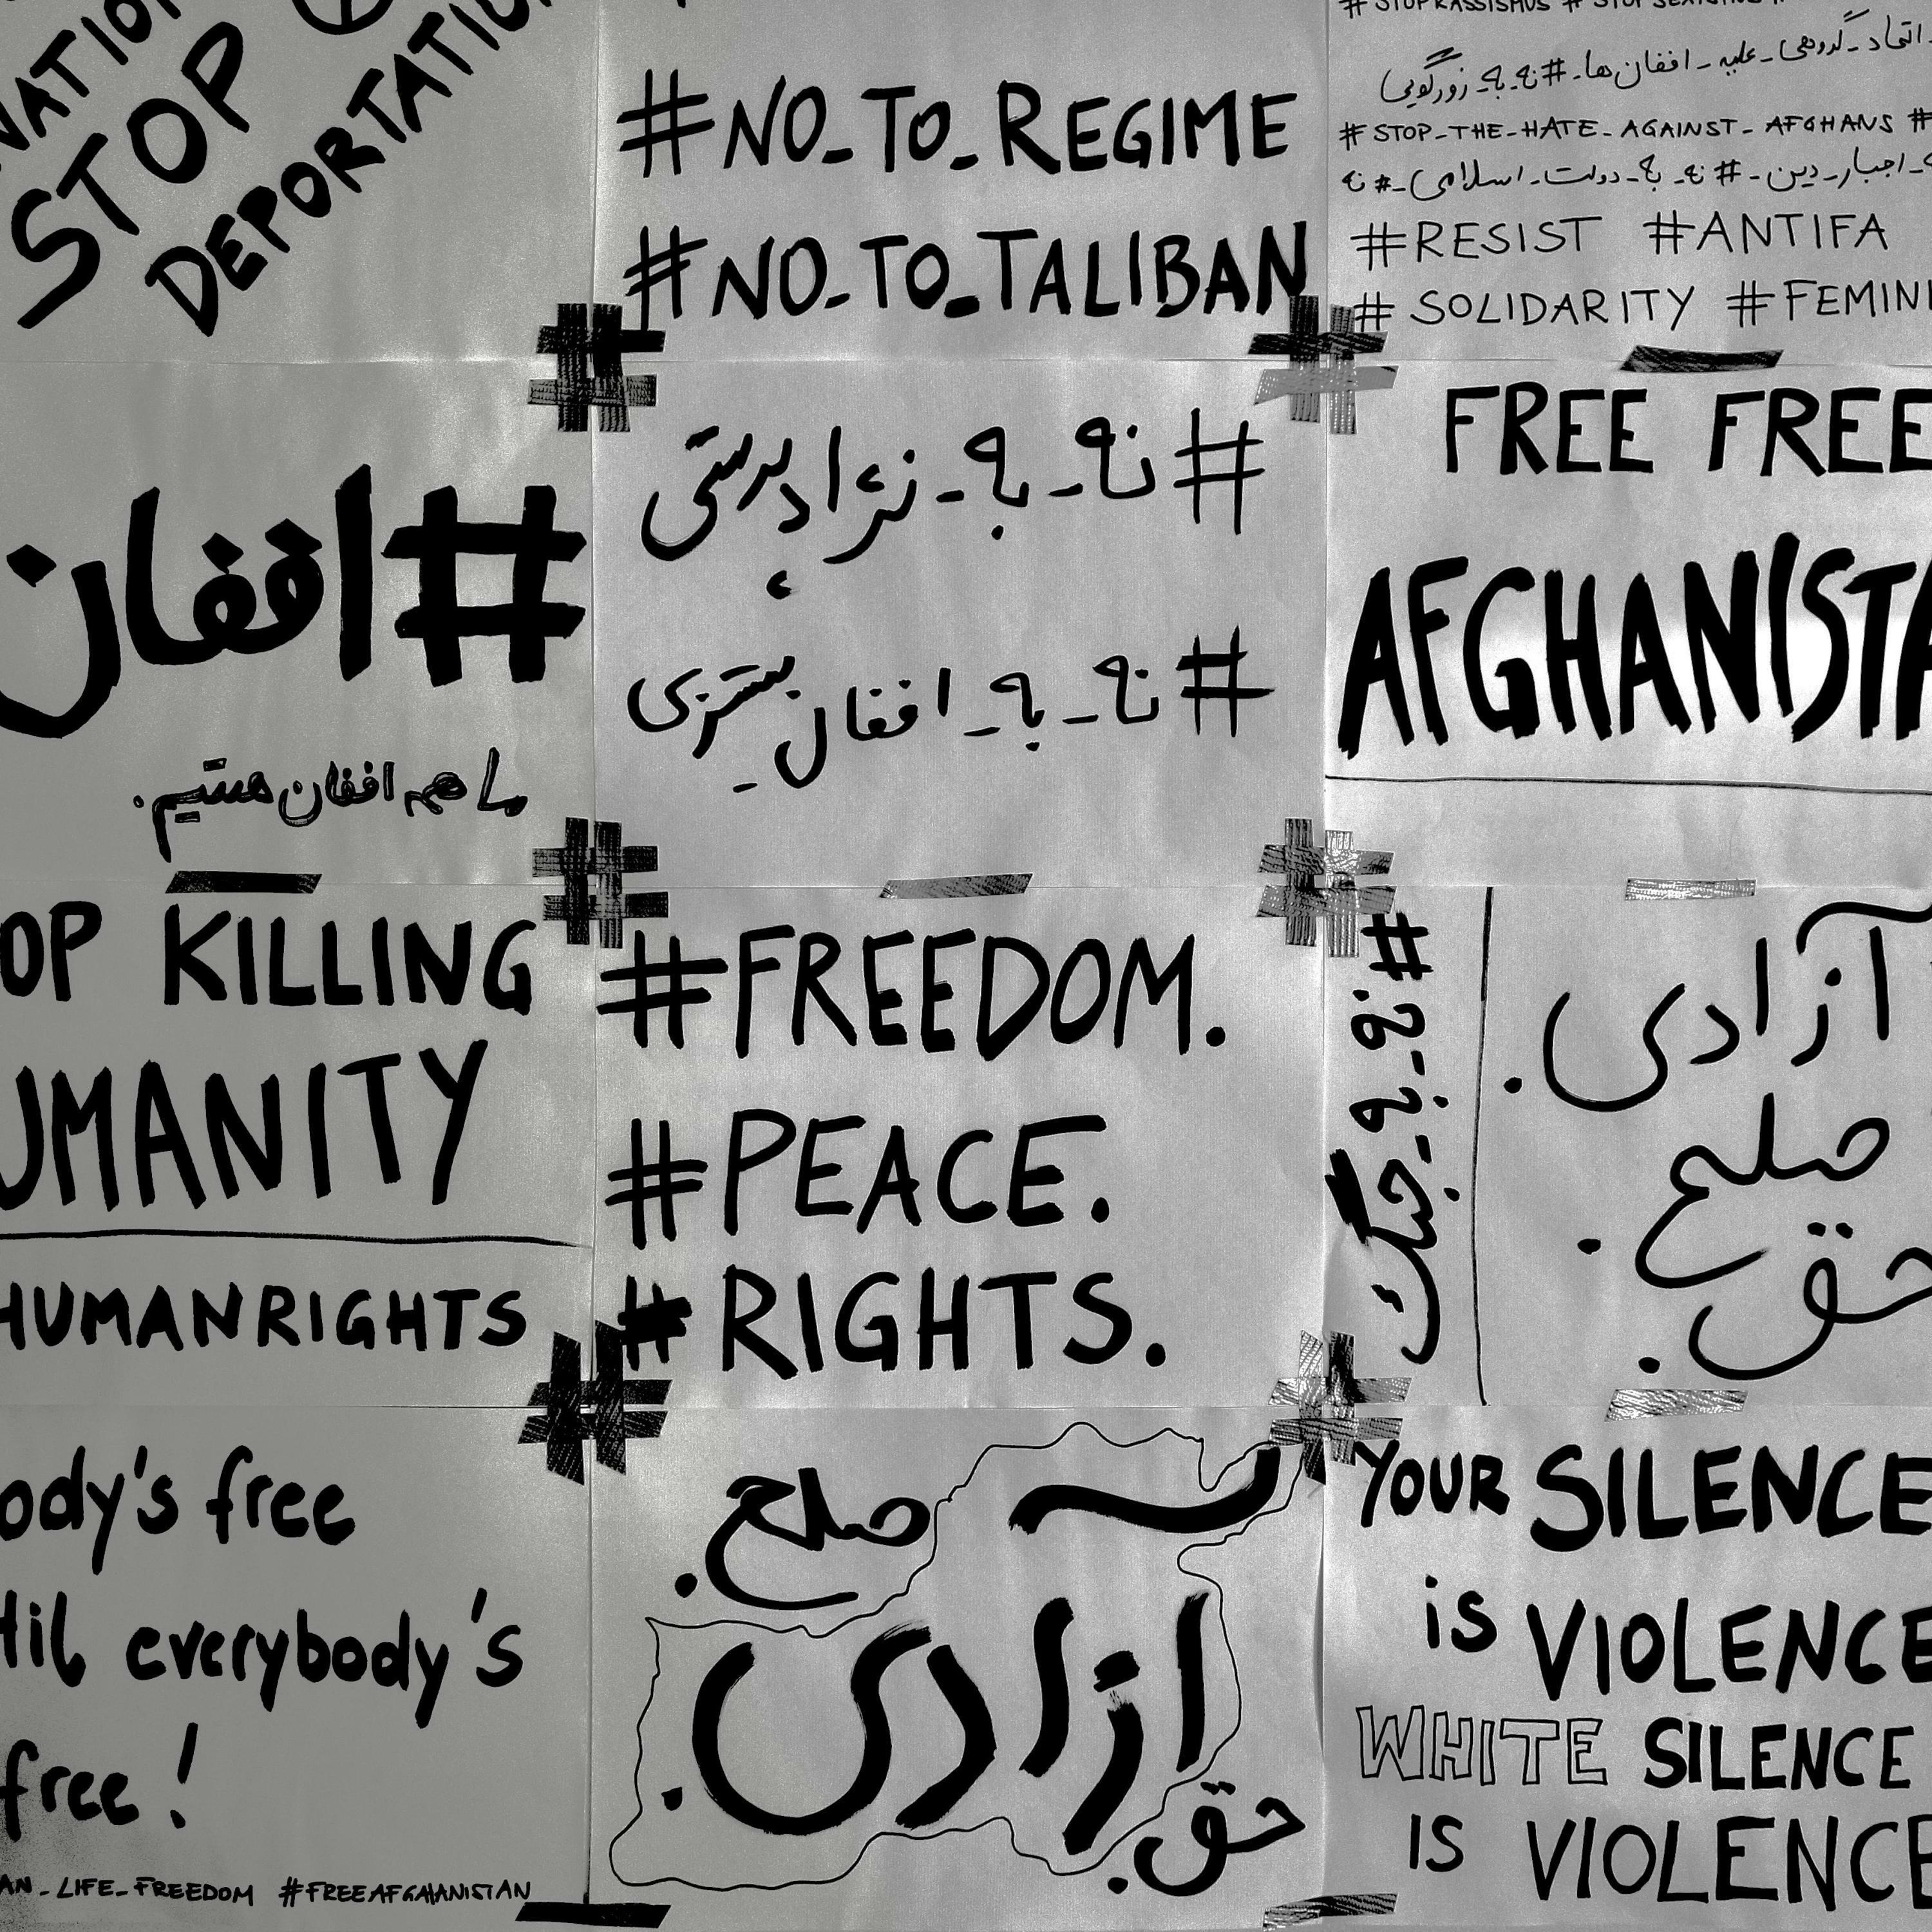 STOP
#NO_TO_REGIME
#NO_TO_TALIBAN
اتحاد_گروهی_علیه_افغان‌ها_#نه_به_زورگویی
#STOP_THE_HATE_AGAINST_AFGHANS #
اجبار_دین_#نه_به_دولت_اسلامی_#نه
#RESIST #ANTIFA
#SOLIDARITY
#افغان
ما هم افغان هستیم.
#نه_به_نژادپرستی
#نه_به_افغان‌ستیزی
FREE FREE
KILLING
HUMANRIGHTS
#FREEDOM.
#PEACE.
#RIGHTS.
#نه_به_جنگ
آزادی.
صلح.
حق.
free
everybody's
free!
LIFE_FREEDOM #FREEAFGHANISTAN
صلح.
آزادی.
حق.
YOUR SILENCE
is VIOLENCE
WHITE SILENCE
IS VIOLENCE